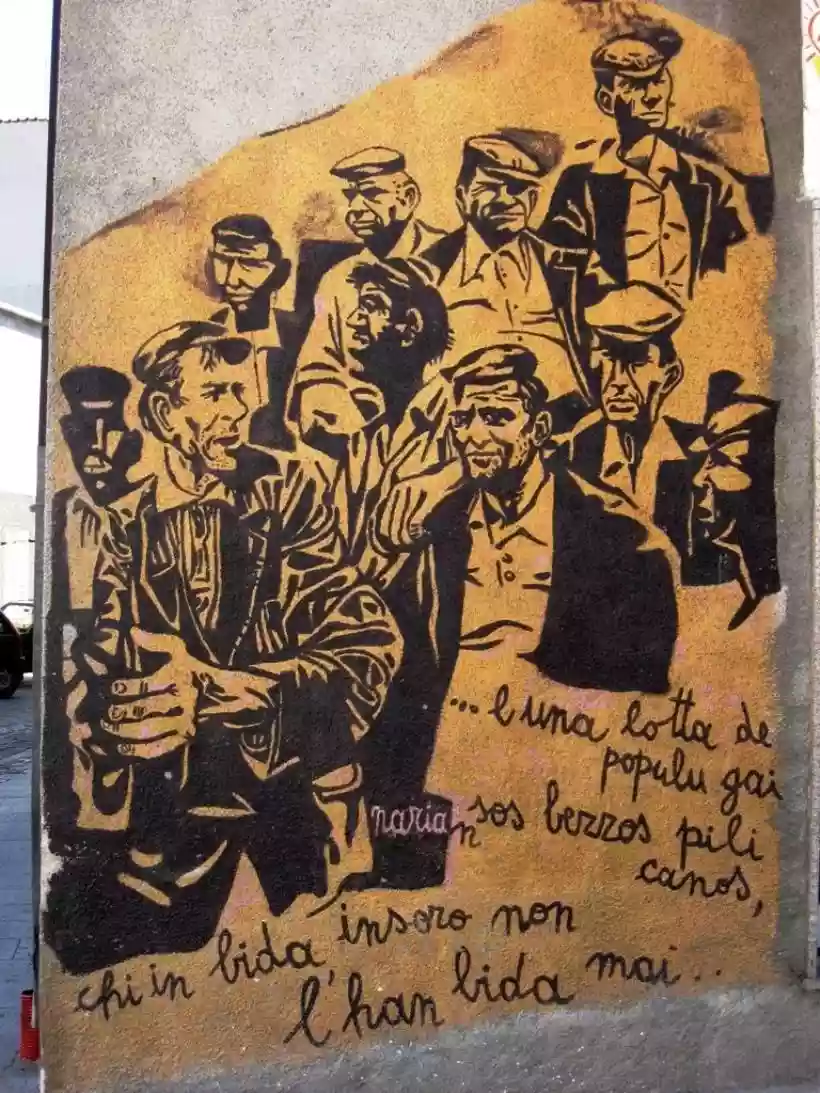 ... e una lotta de
populu gai
narian sos bezzos pili
canos,
chi in bida insoro non
l'han bida mai..